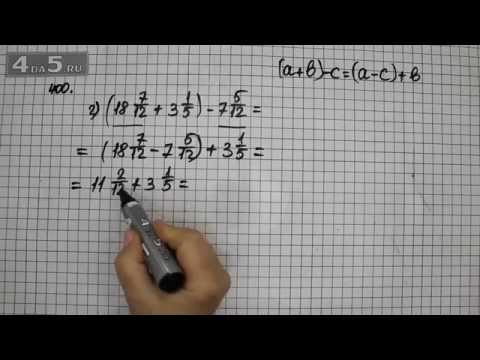 4 DA 5.RU
400.
(a+b)-c=(a-c)+b
г) (18 7/12 + 3 1/5) - 7 5/12 =
= (18 7/12 - 7 5/12) + 3 1/5 =
= 11 2/12 + 3 1/5 =